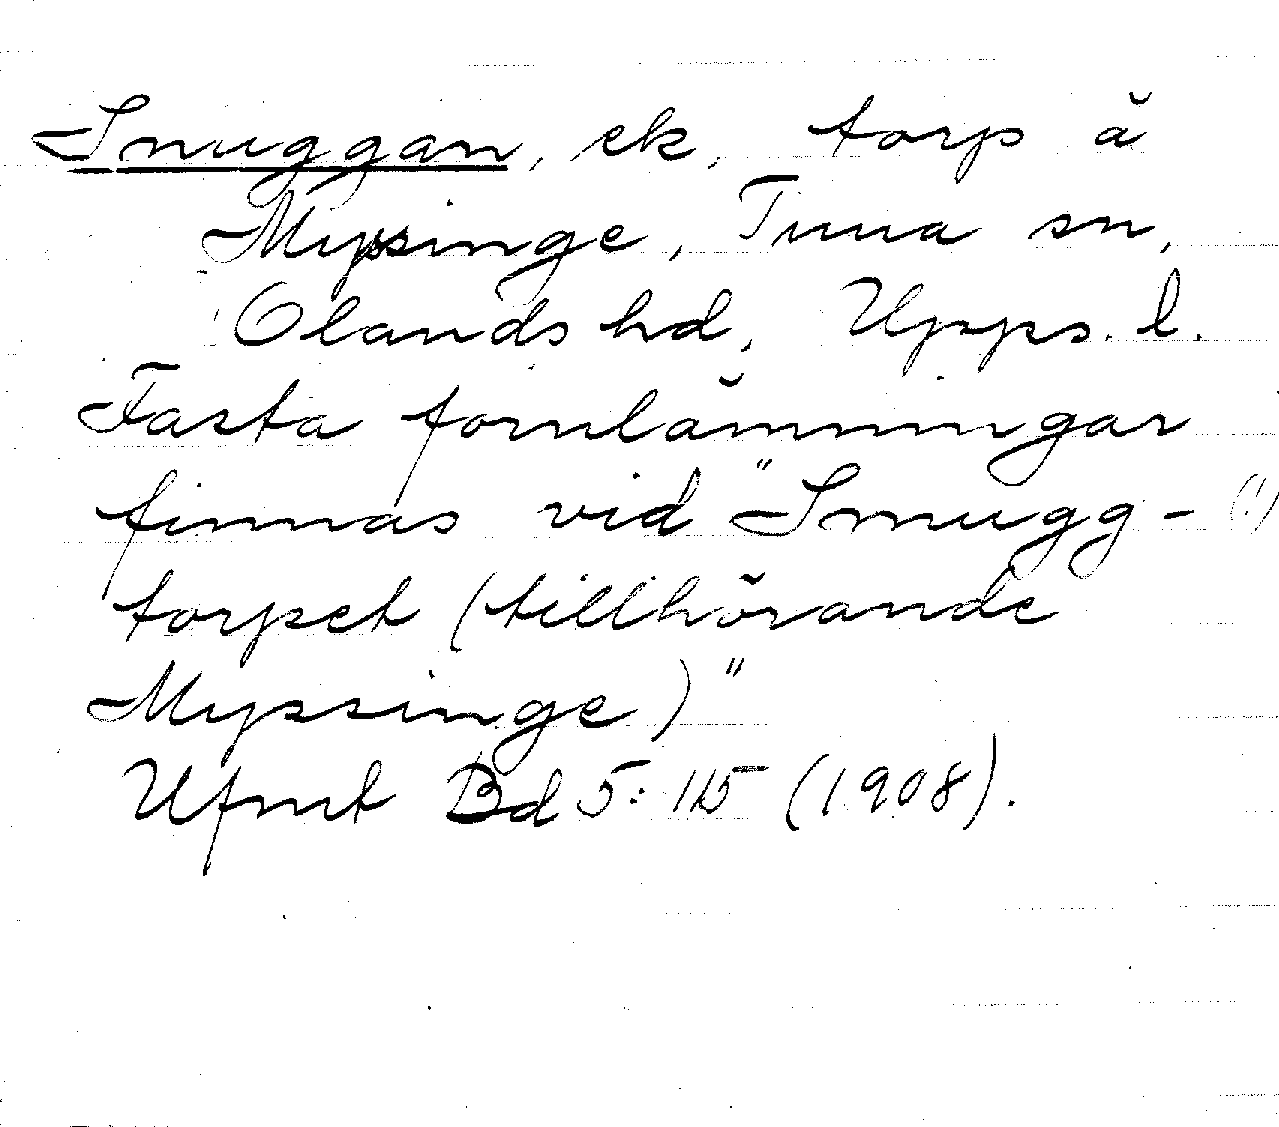 Snuggan, ek, torp å
Myssinge, Tuna sn,
Olands hd, Upps. l.
Fasta fornlämningar
finnas vid "Smugg- (!)
torpet (tillhörande
Myssinge)"
Ufmt Bd 5: 115 (1908).